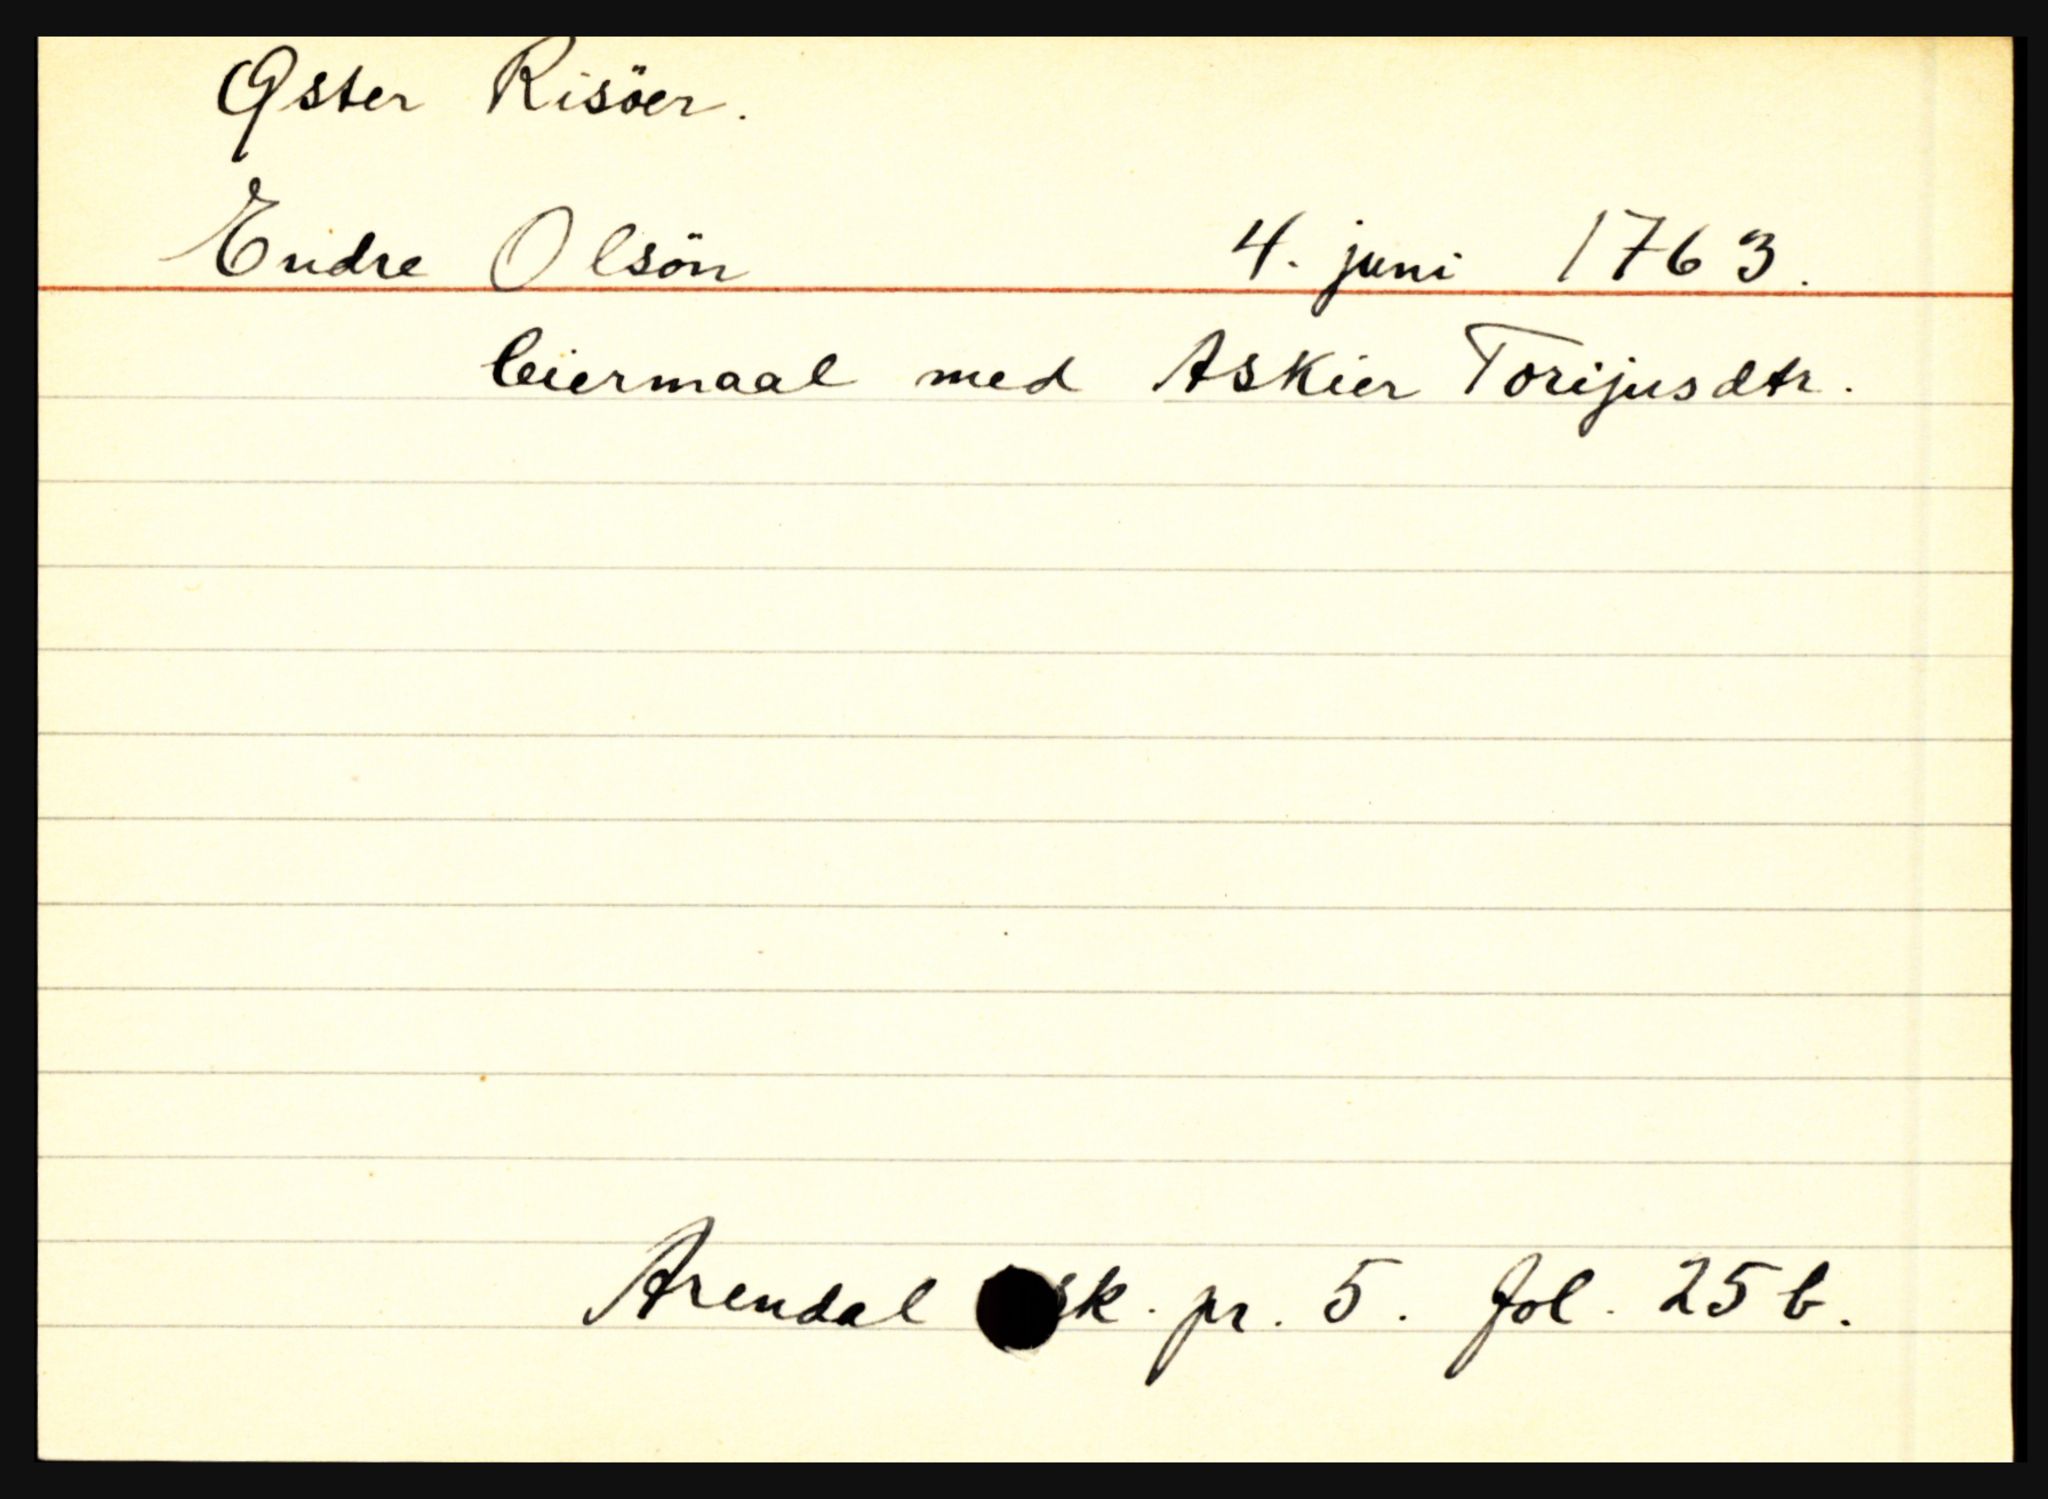 Øster Risöer.
Endre Olsön 4. juni 1763.
leiermaal med Askier Torijusdtr.
Arendal sk. pr. 5. fol. 25b.